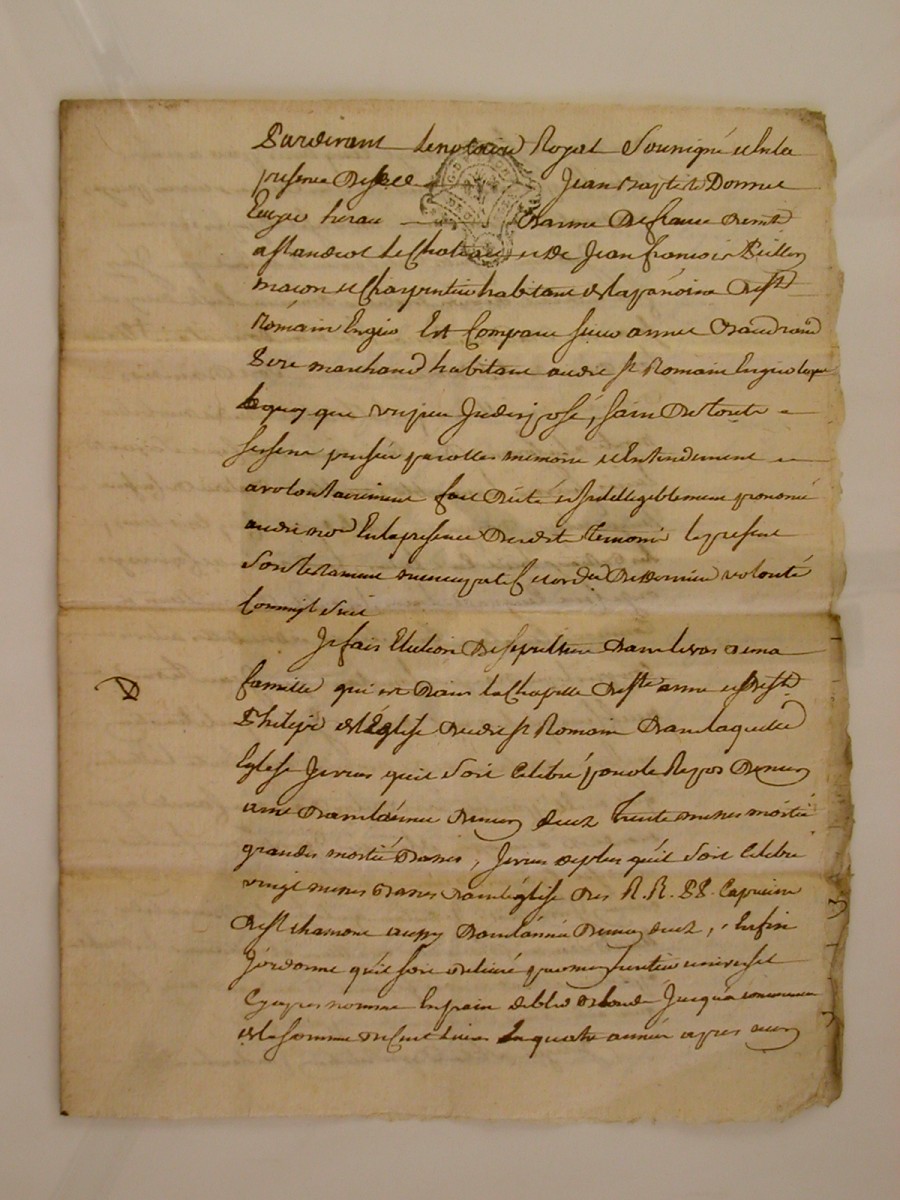 Pardevant le notaire Royal Sousigné et En la
presence de Jean Baptiste
Ecuyer d'arme de france
a st andeol le Chateau et de Jean francois
macon et Charpentier habitant de la paroisse de st
Romain Engier Est Comparu sieur
Pere marchand habitant audit st Romain Engier
quoy que un peu Indisposé, sain de touts
ses sens pensée parolles memoire et Entendement
a volontairement fait dicté et Intelligiblement prononcé
audit not En la presence desdits temoins le present
son testament nuncupatif et ordre de derniere volonté
Comm'il suit
Je fais Election de sepulture dans le vas de ma
famille qui est dans la Chapelle de ste anne et de st
Philipe de l'Eglise dudit st Romain dans laquelle
Eglise Je veux qu'il soit Celebré pour le Repos de mon
ame dans l'année de mon decez trente messes moitié
grandes moitié basses, Je veux de plus qu'il soit Celebré
vingt messes basses dans l'église des R.R. PP. Capucins
de st chamond aussy dans l'année de mon decez, Enfin
J'ordonne qu'il soit delivré par mon heritier universel
Cy apres nommé En pain de bled Jusqu'a concurrence
de la somme de Cent livres En quatre année apres mon